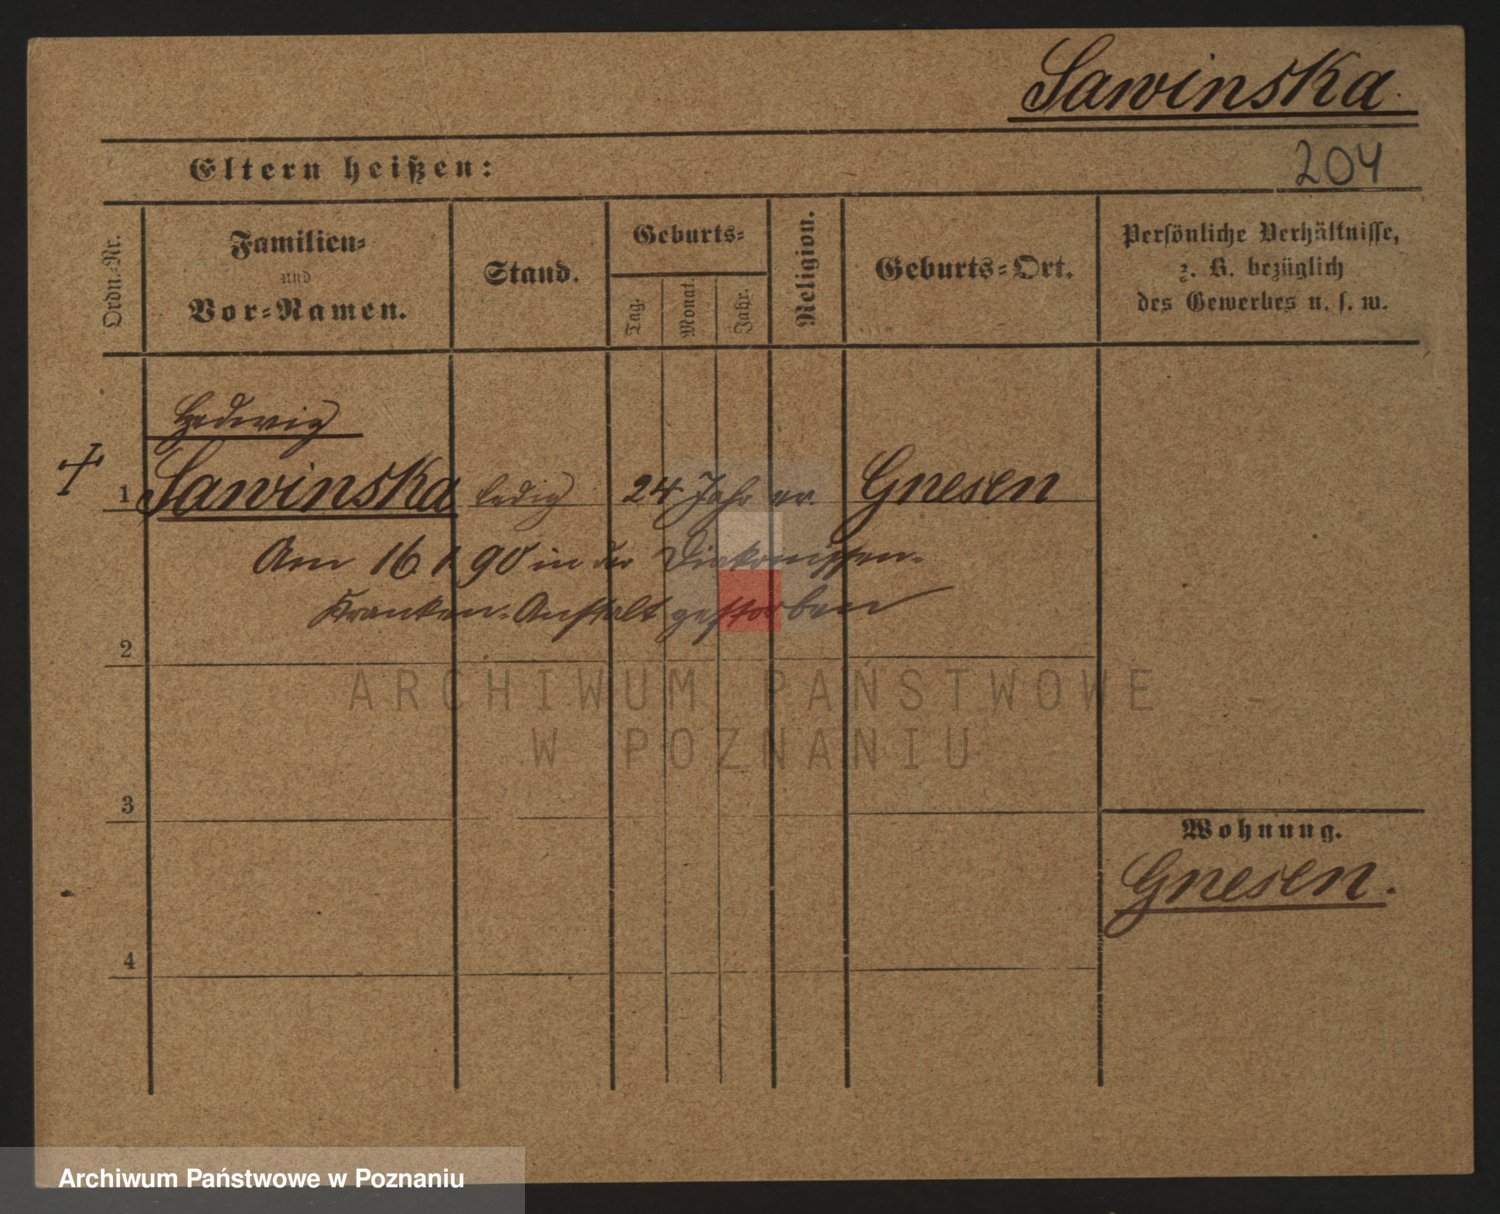 Sawinska
Eltern heißen:
204
Ordn.-Nr.
Familien-
und
Vor-Namen.
Stand.
Geburts-
Tag.
Monat.
Jahr.
Religion.
Geburts-Ort.
Persönliche Verhältnisse,
z. B. bezüglich
des Gewerbes u. s. w.
Hedwig
1 Sawinska ledig 24 Jahr Gnesen
Am 16 1 90 in der Diakonissen-
Kranken-Anstalt gestorben
2
3
4
Wohnung.
Gnesen.
ARCHIWUM PAŃSTWOWE
W POZNANIU
Archiwum Państwowe w Poznaniu